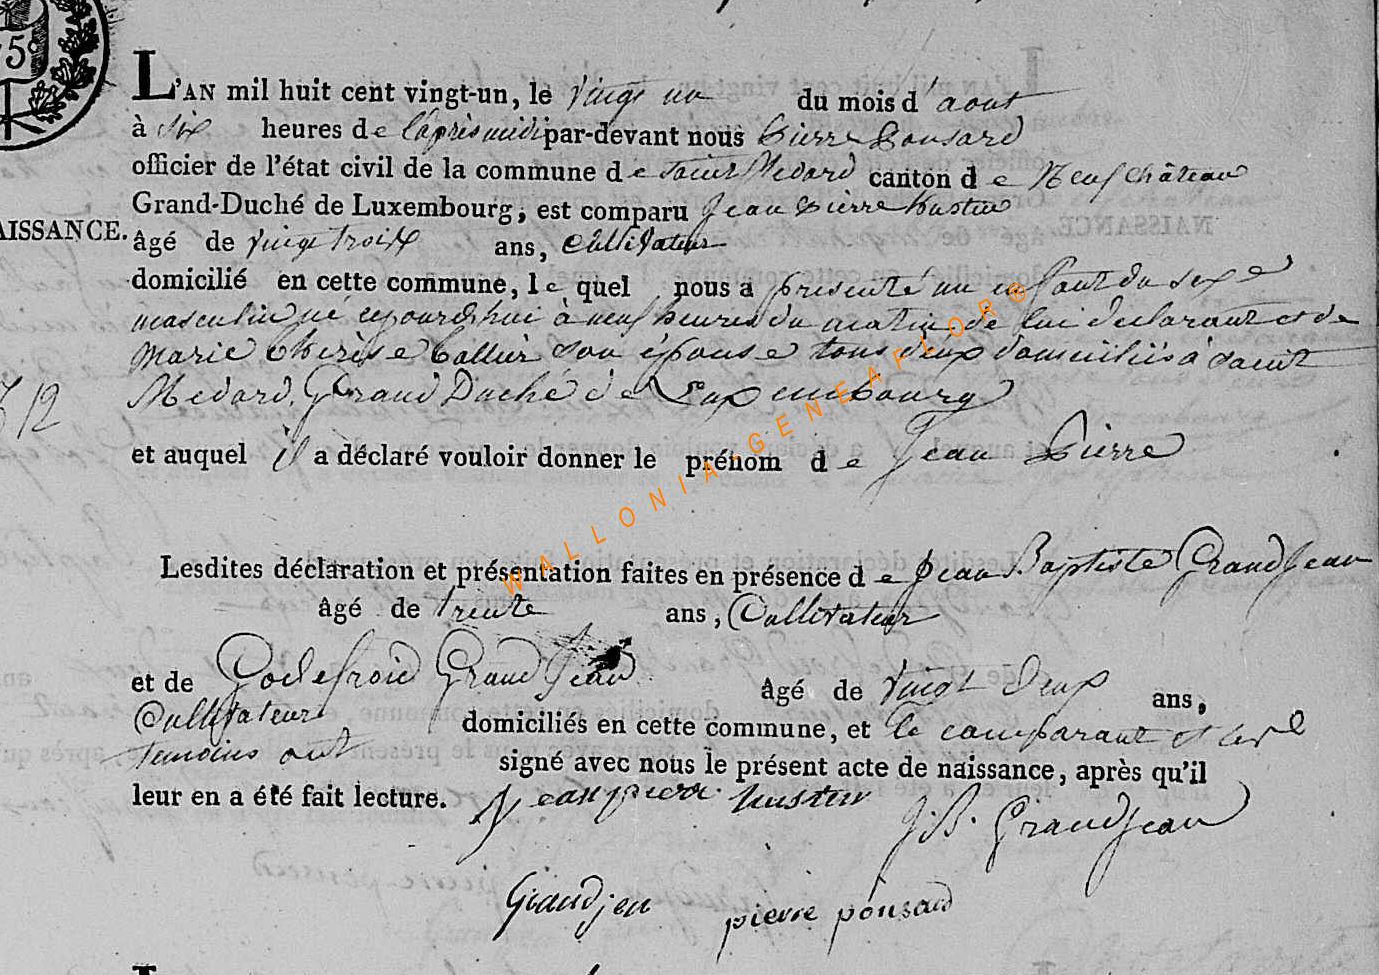 5c
L'AN mil huit cent vingt-un, le vingt un du mois d'aout
à six heures de l'après midi par-devant nous Pierre Ponsard
officier de l'état civil de la commune de saint Medard canton de Neufchâteau
Grand-Duché de Luxembourg, est comparu Jean Pierre hustin
AISSANCE.
âgé de vingt troix ans, Cultivateur
domicilié en cette commune, le quel nous a presenté un enfant du sexe
masculin né cejourdhui à neuf heures du matin de lui declarant et de
Marie therèse Collin son épouse tous deux domiciliés à saint
Medard, Grand Duché de Luxembourg
et auquel il a déclaré vouloir donner le prénom de Jean Pierre
Lesdites déclaration et présentation faites en présence de Jean Baptiste Grandjean
âgé de trente ans, Cultivateur
et de Godefroid Grandjean âgé de vingt deux ans,
Cultivateur domiciliés en cette commune, et le comparant et les
temoins ont signé avec nous le présent acte de naissance, après qu'il
leur en a été fait lecture. jean pierre hustin
J. B. Grandjean
Grandjen pierre ponsard
WALLONIA-GENEAFLOR©